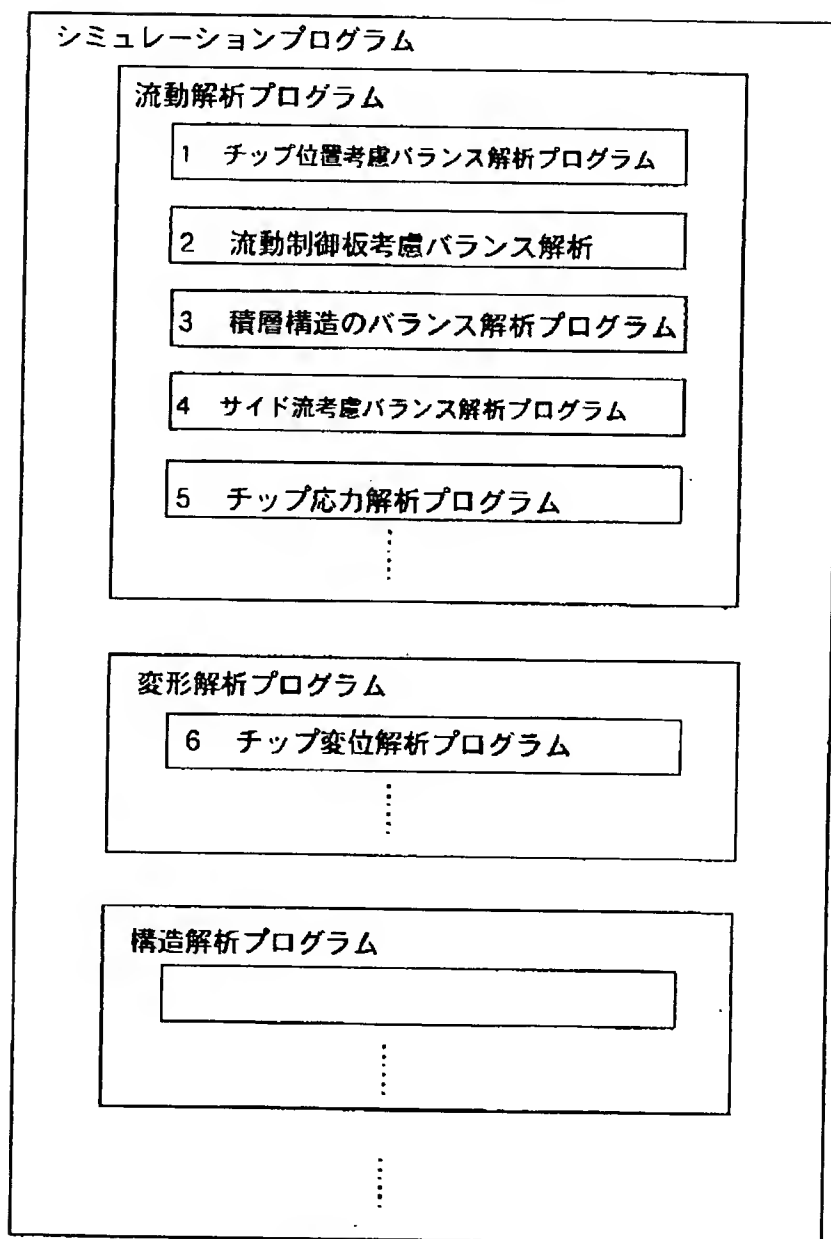 シミュレーションプログラム
流動解析プログラム
1 チップ位置考慮バランス解析プログラム
2 流動制御板考慮バランス解析
3 積層構造のバランス解析プログラム
4 サイド流考慮バランス解析プログラム
5 チップ応力解析プログラム
変形解析プログラム
6 チップ変位解析プログラム
構造解析プログラム